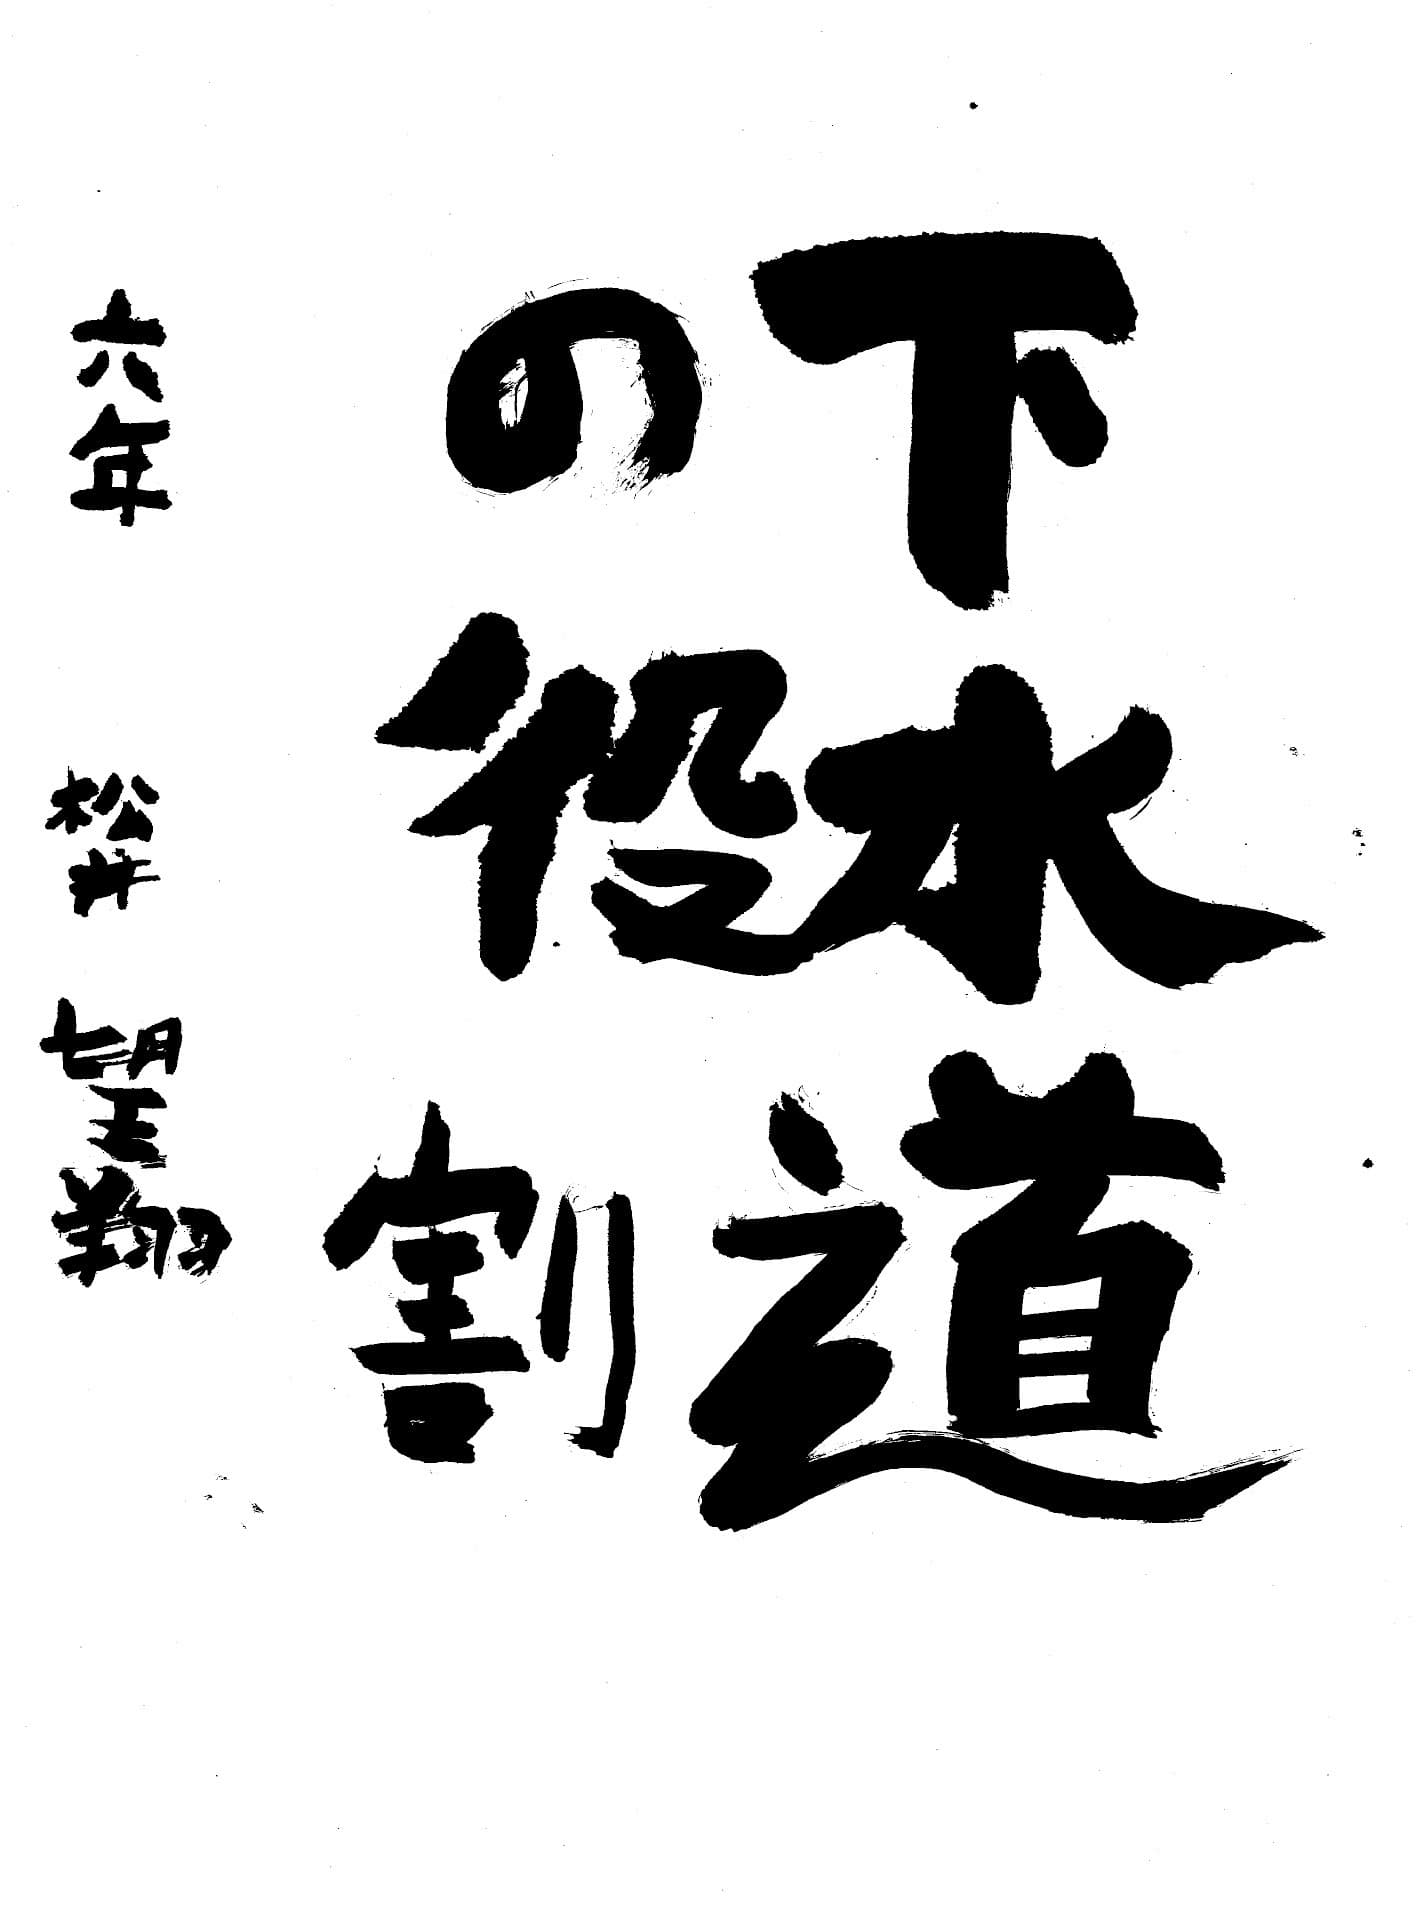 下水道
の役割
六年 松井望翔